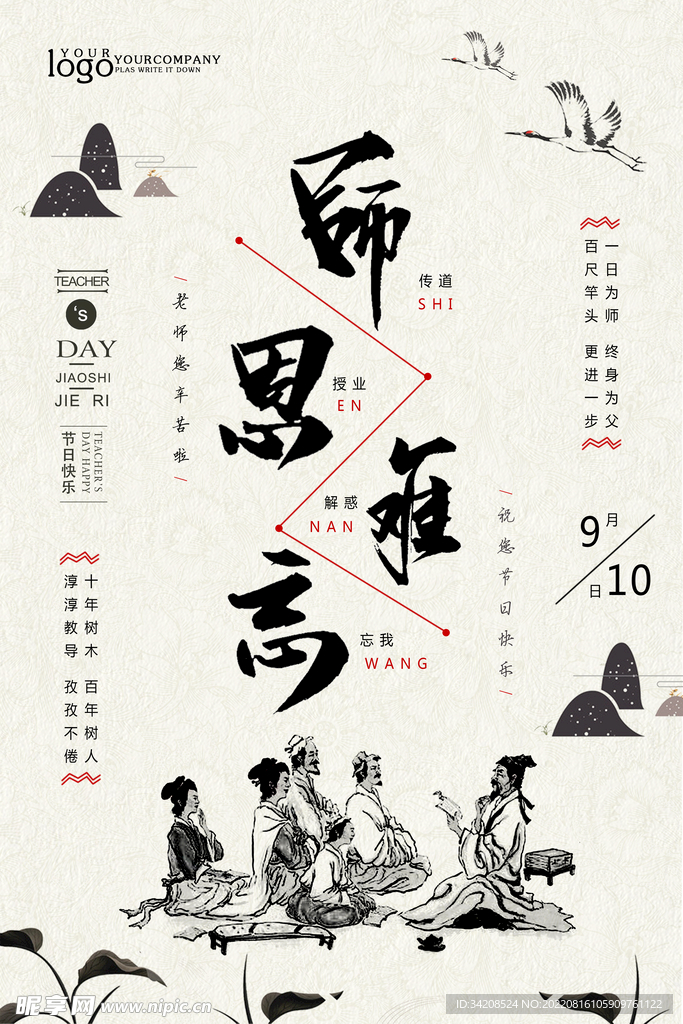 YOUR
logo
YOURCOMPANY
PLAS WRITE IT DOWN
師
恩
难
忘
传道
SHI
授业
EN
解惑
NAN
忘我
WANG
TEACHER
's
DAY
JIAOSHI
JIE RI
TEACHER'S
DAY HAPPY
节日快乐
老师您辛苦啦
一日为师 终身为父
百尺竿头 更进一步
祝您节日快乐
9月
10日
十年树木 百年树人
淳淳教导 孜孜不倦
昵享网 www.nipic.cn
ID:34208524 NO:20220816105909761122